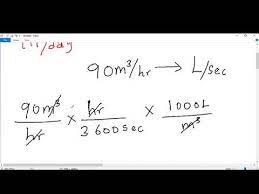 m/day
90m³/hr → L/sec
90m³/hr × hr/3600sec × 1000L/m³